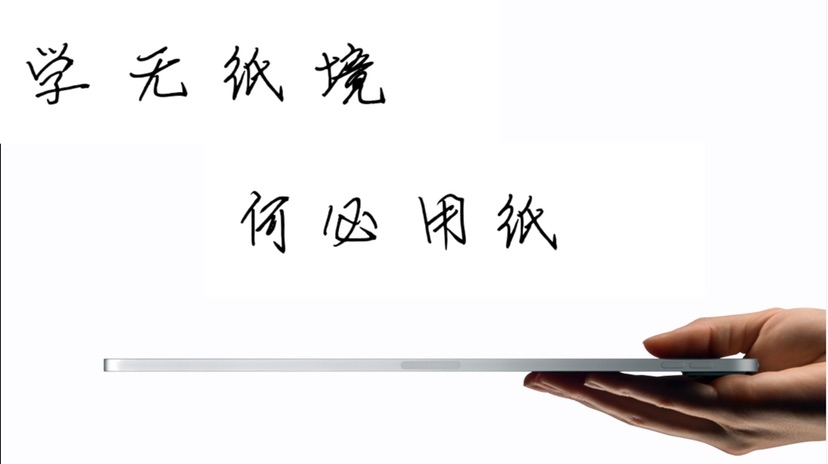 学无纸境
何必用纸